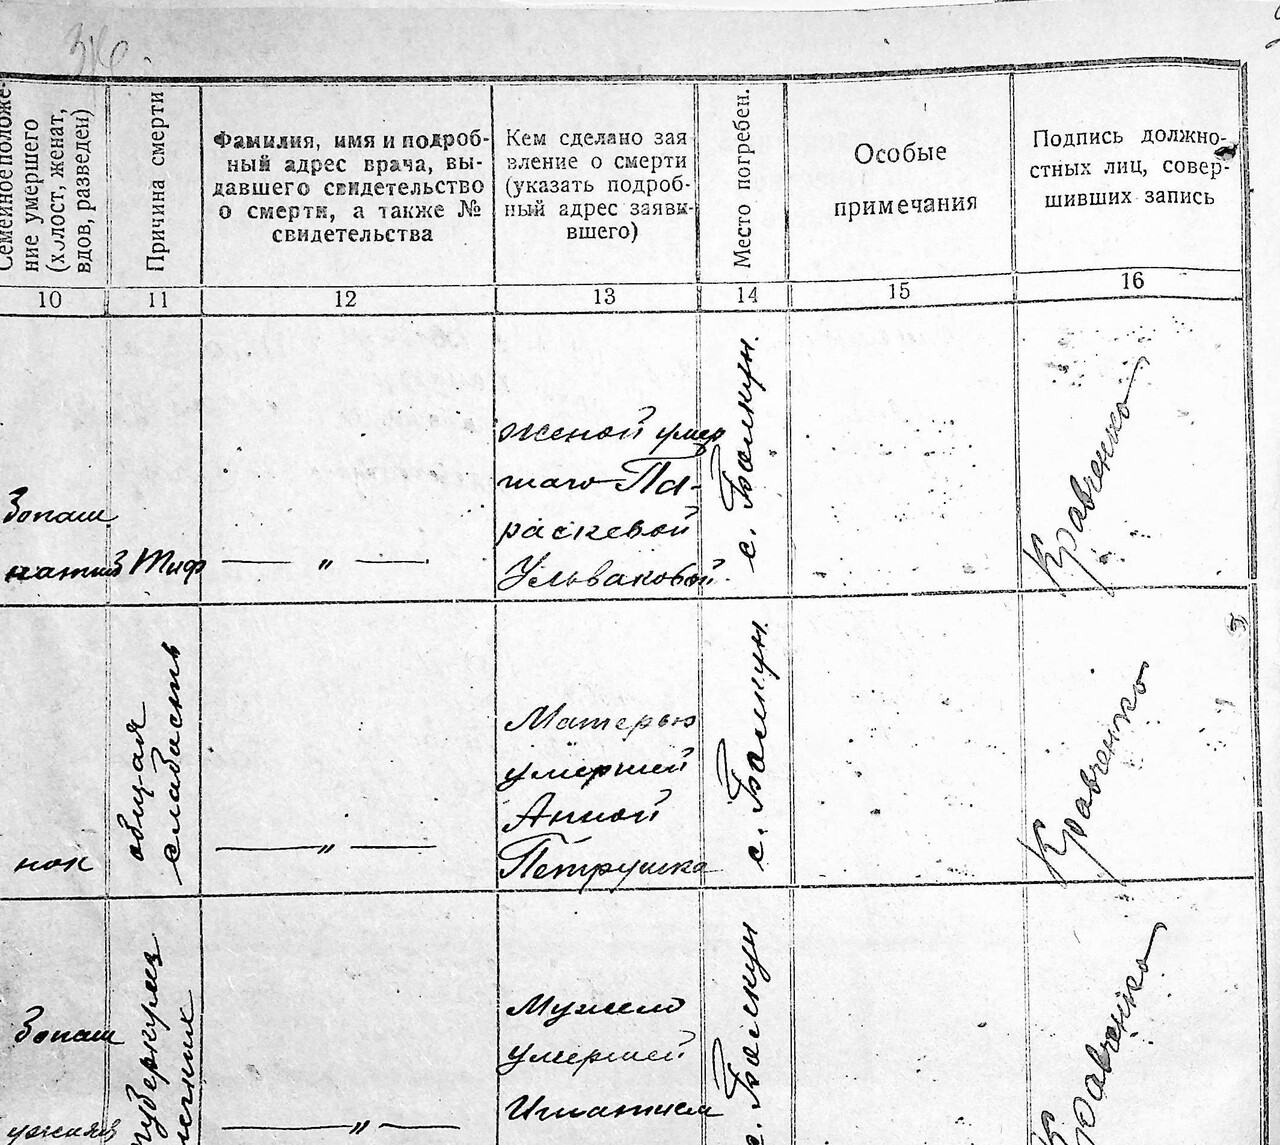 Семейное положе-
ние умершего
(холост, женат,
вдов, разведен)
Причина смерти
Фамилия, имя и подроб-
ный адрес врача, вы-
давшего свидетельство
о смерти, а также №
свидетельства
Кем сделано зая
вление о смерти
(указать подроб-
ный адрес заяви-
вшего)
Место погребен.
Особые
примечания
Подпись должно-
стных лиц, совер-
шивших запись
10 11 12 13 14 15 16
Тиф
— „ —
женой умер
шаго Па-
раскевой
с. Балкун.
Кравченко
общая
слабасть
— „ —
Матерью
умершей
Анной
Петрушка
с. Балкун.
Кравченко
— „ —
Мужем
умершей
Игнатием
с. Балкун
Кравченко